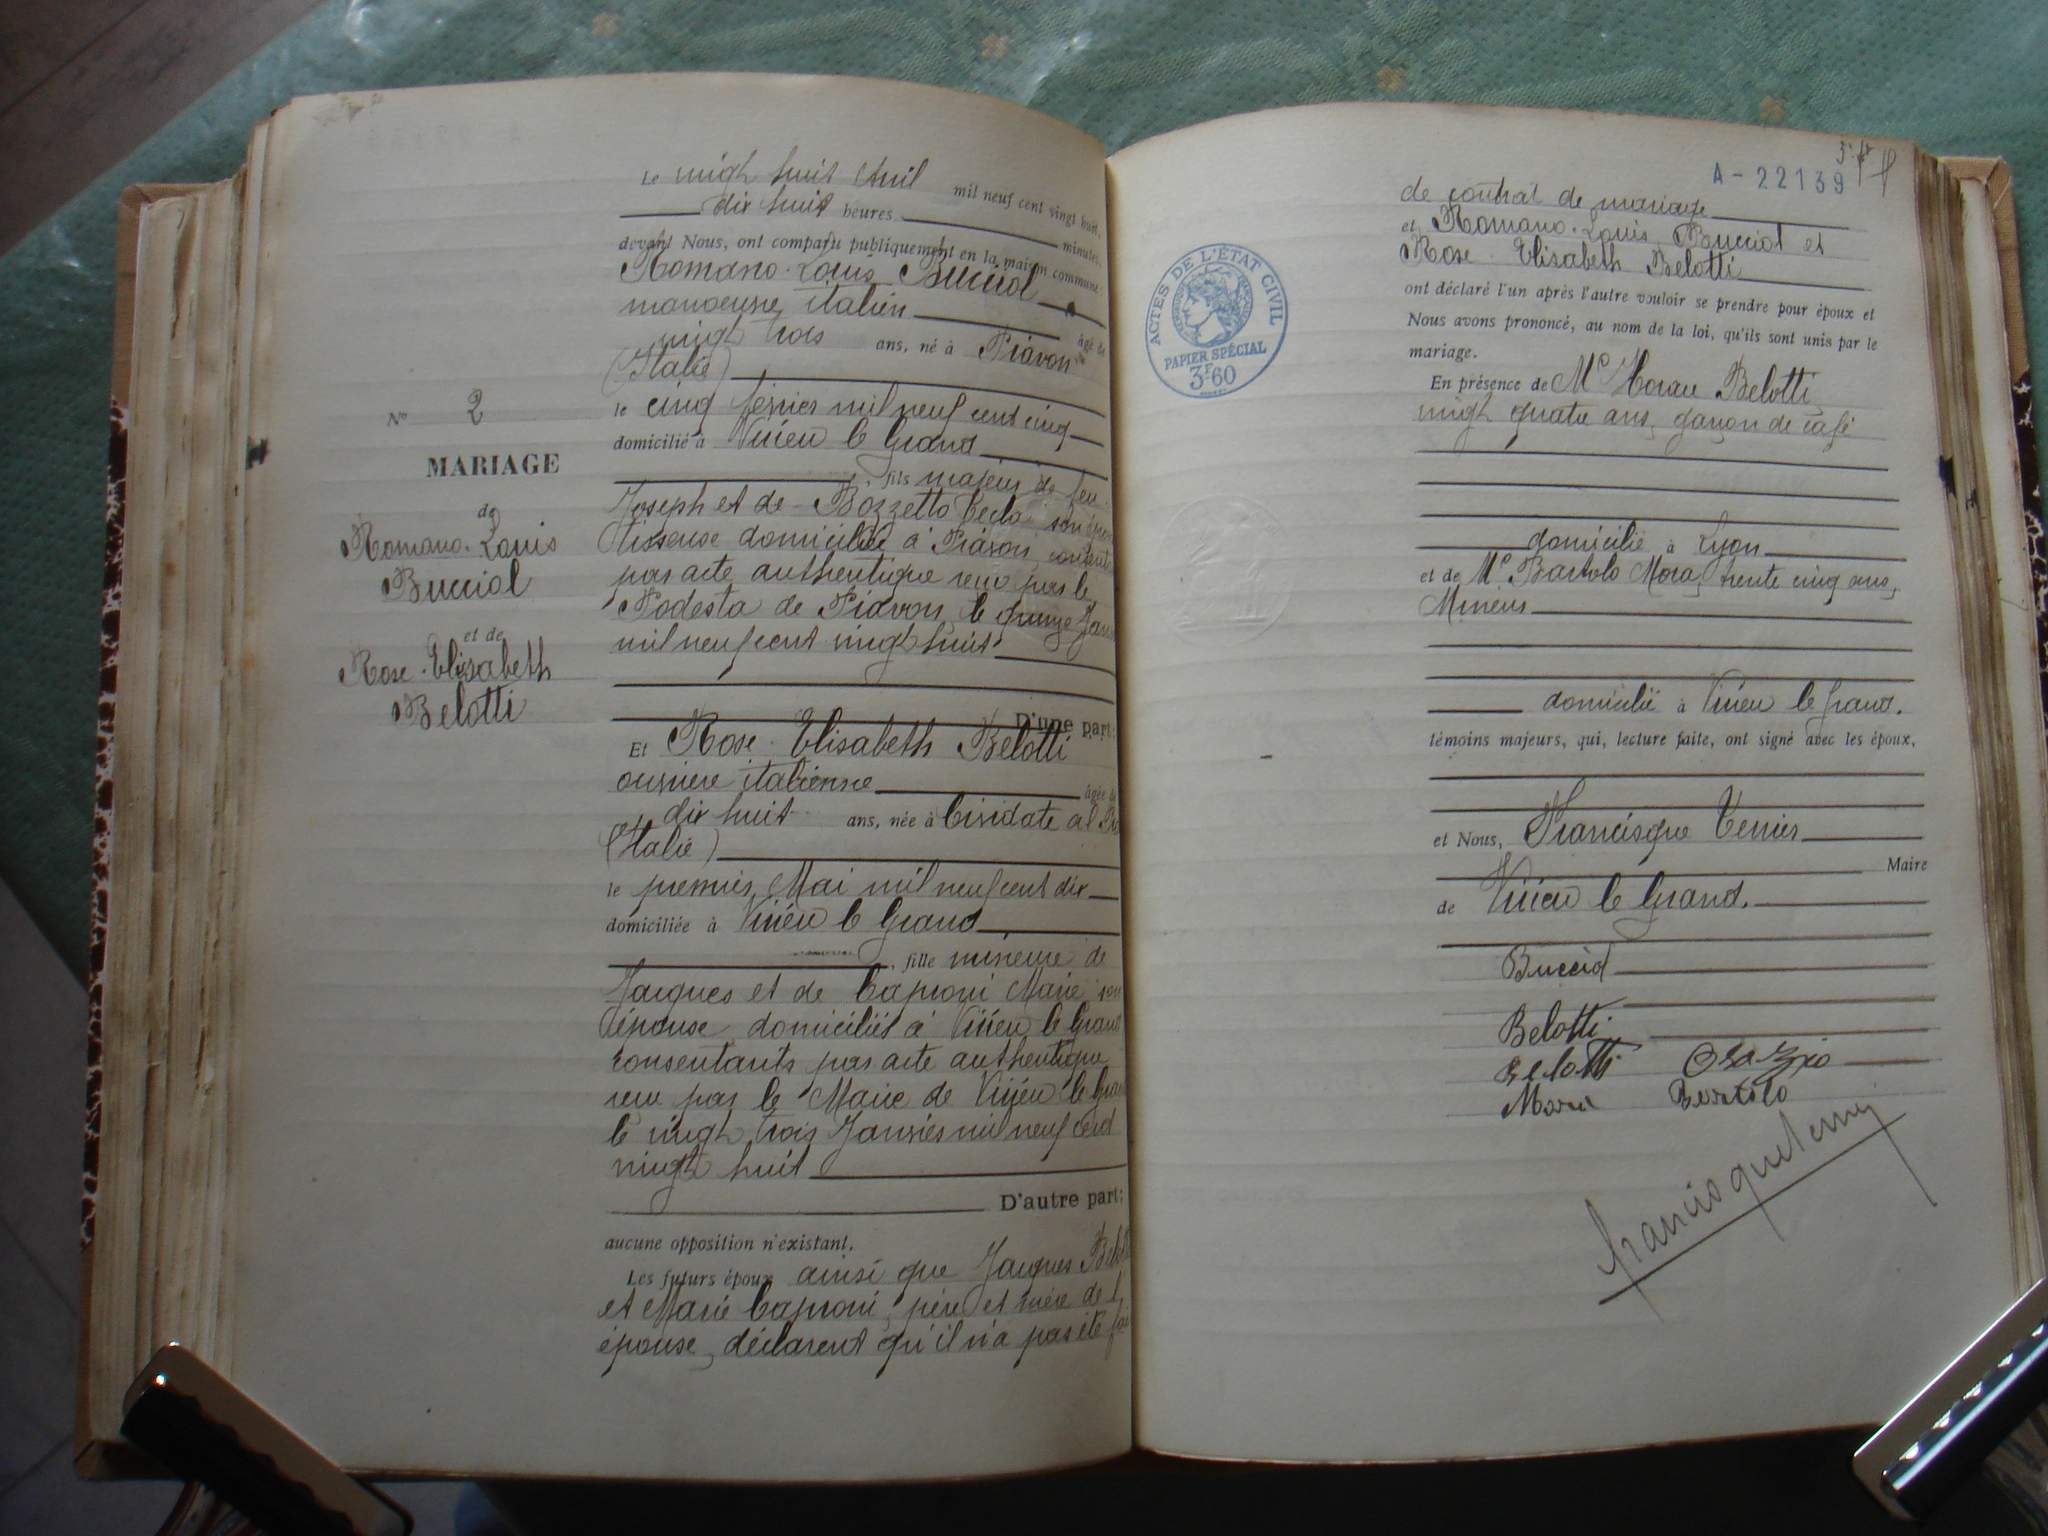 Le vingt huit Avril mil neuf cent vingt huit,
dix huit heures minutes,
devant Nous, ont comparu publiquement en la maison commune
Romano-Louis Bucciol
manoeuvre italien âgé de
vingt trois ans, né à Piavon
(Italie)
le cinq février mil neuf cent cinq
domicilié à Virieu le Grand
, fils majeur de feu
Joseph et de Bozzetto Tecla son
tisseuse domiciliée à Piavon,
par acte authentique reçu par le
Podesta de Piavon, le quinze
mil neuf cent vingt huit
D'une part:
Et Rose-Elisabeth Belotti
ouvrière italienne âgée de
dix huit ans, née à Cividate al
(Italie)
le premier Mai mil neuf cent dix
domiciliée à Virieu le Grand
, fille mineure de
Jacques et de Caproni Marie son
épouse, domiciliés à Virieu le Grand
consentants par acte authentique
reçu par le Maire de Virieu le
le vingt trois Janvier mil neuf cent
vingt huit
D'autre part:
aucune opposition n'existant.
Les futurs époux ainsi que Jacques
et Marie Caproni, père et mère de l'
épouse, déclarent qu'il n'a pas été
No 2
MARIAGE
de
Romano-Louis
Bucciol
et de
Rose-Elisabeth
Belotti
A-22139
de contrat de mariage
et Romano-Louis Bucciol et
Rose-Elisabeth Belotti
ont déclaré l'un après l'autre vouloir se prendre pour époux et
Nous avons prononcé, au nom de la loi, qu'ils sont unis par le
mariage.
En présence de Mr Belotti
vingt quatre ans, garçon de café
domicilié à Lyon
et de Mr Bartolo Mora, trente cinq ans,
Mineur
domicilié à Virieu le Grand.
témoins majeurs, qui, lecture faite, ont signé avec les époux,
et Nous, Francisque Terrier
Maire
de Virieu le Grand.
Bucciol
Belotti
Belotti Orazio
Mora Bortolo
ACTES DE L'ÉTAT CIVIL
PAPIER SPÉCIAL
3F60